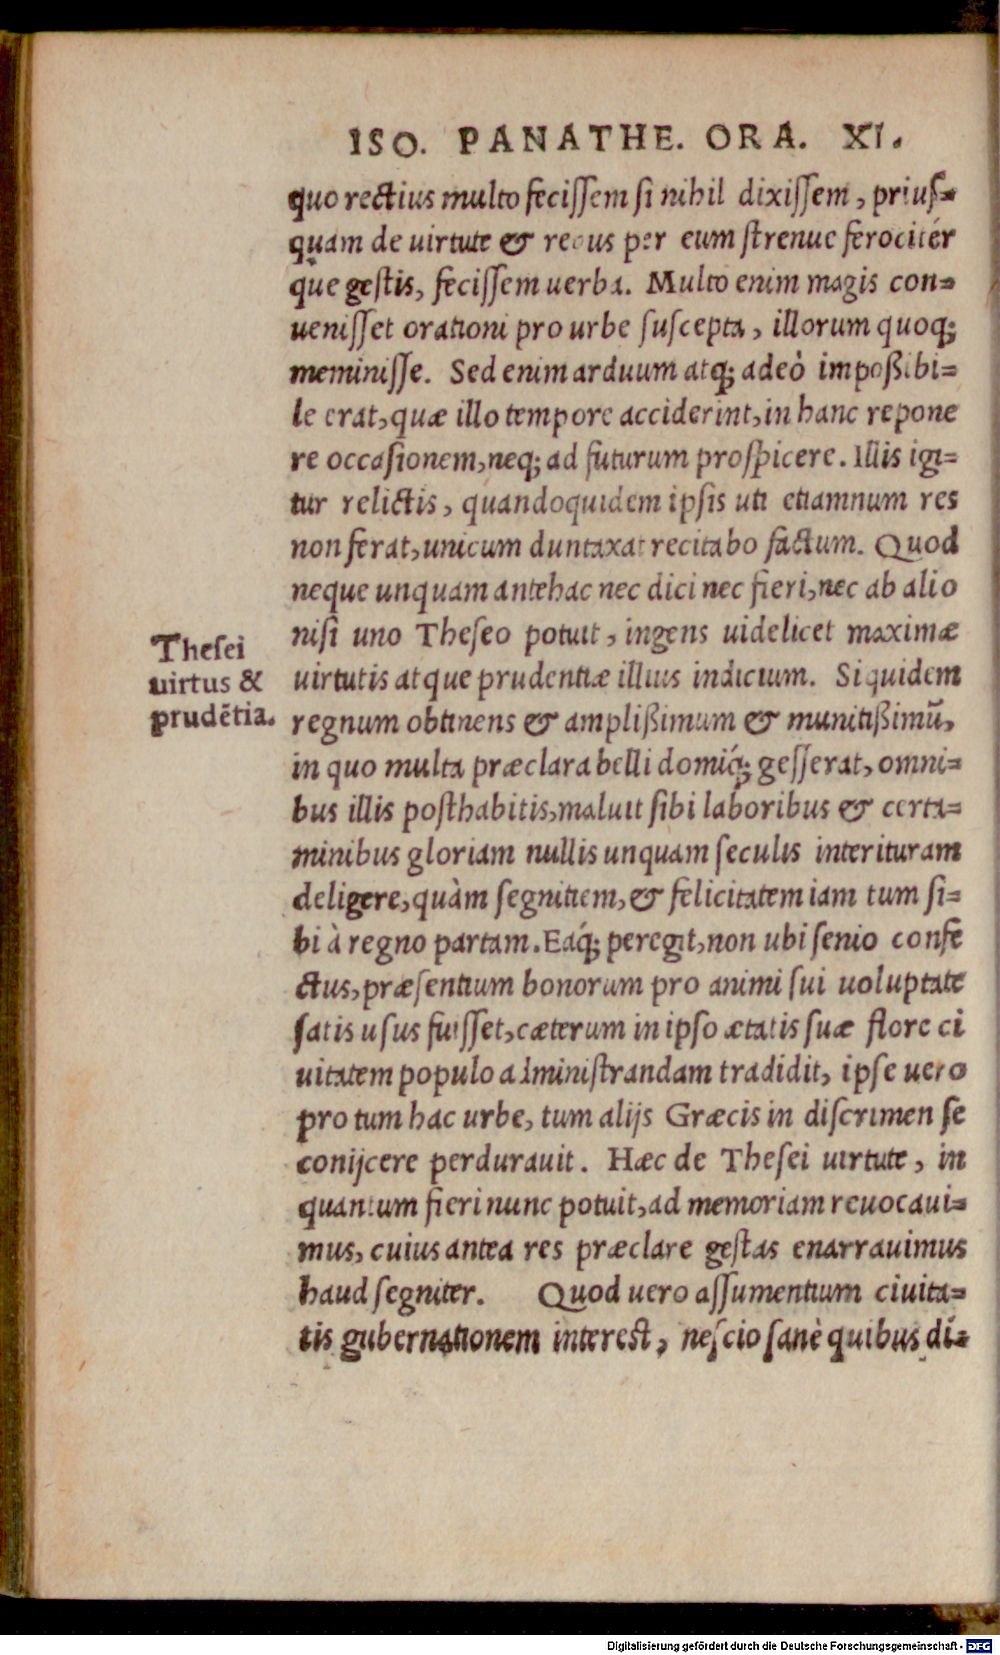 ISO. PANATHE. ORA. XI.
quo rectius multo fecissem si nihil dixissem, prius-
quam de uirtute & rebus per eum strenue ferociter
que gestis, fecissem uerba. Multo enim magis con-
uenisset orationi pro urbe suscepta, illorum quoq;
meminisse. Sed enim arduum atq; adeò impoßibi-
le erat, quæ illo tempore acciderint, in hanc repone
re occasionem, neq; ad futurum prospicere. Illis igi-
tur relictis, quandoquidem ipsis uti etiamnum res
non ferat, unicum duntaxat recitabo factum. Quod
neque unquam antehac nec dici nec fieri, nec ab alio
nisi uno Theseo potuit, ingens uidelicet maximæ
Thesei
uirtus &
prudẽtia.
uirtutis atque prudentiæ illius indicium. Siquidem
regnum obtinens & amplißimum & munitißimũ,
in quo multa præclara belli domiq́; gesserat, omni-
bus illis posthabitis, maluit sibi laboribus & certa-
minibus gloriam nullis unquam seculis interituram
deligere, quàm segnitiem, & felicitatem iam tum si-
bi à regno partam. Eaq́; peregit, non ubi senio confe
ctus, præsentium bonorum pro animi sui uoluptate
satis usus fuisset, cæterum in ipso ætatis suæ flore ci
uitatem populo administrandam tradidit, ipse uero
pro tum hac urbe, tum alijs Græcis in discrimen se
conijcere perdurauit. Hæc de Thesei uirtute, in
quantum fieri nunc potuit, ad memoriam reuocaui-
mus, cuius antea res præclare gestas enarrauimus
haud segniter. Quod uero assumentium ciuita-
tis gubernationem interest, nescio sanè quibus di-
Digitalisierung gefördert durch die Deutsche Forschungsgemeinschaft - DFG